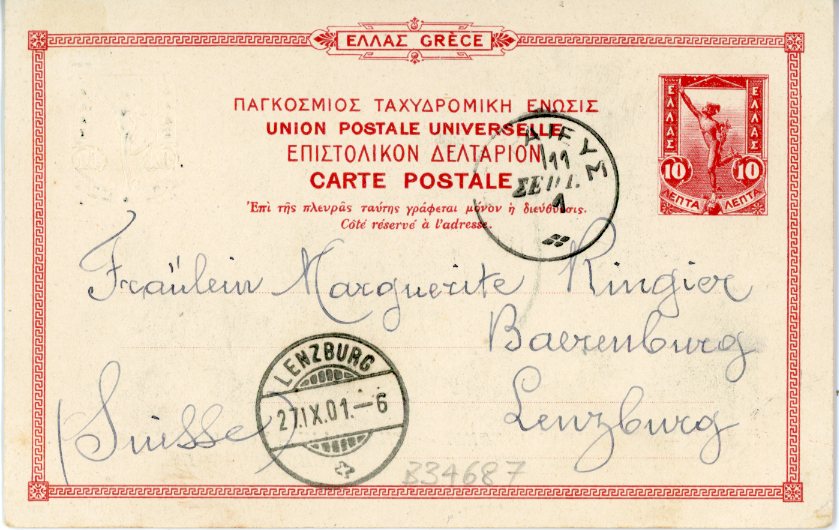 ΕΛΛΑΣ GRÈCE
ΠΑΓΚΟΣΜΙΟΣ ΤΑΧΥΔΡΟΜΙΚΗ ΕΝΩΣΙΣ
UNION POSTALE UNIVERSELLE
ΕΠΙΣΤΟΛΙΚΟΝ ΔΕΛΤΑΡΙΟΝ
CARTE POSTALE
Ἐπὶ τῆς πλευρᾶς ταύτης γράφεται μόνον ἡ διεύθυνσις.
Côté réservé à l'adresse.
ΕΛΛΑΣ
ΕΛΛΑΣ
10 10
ΛΕΠΤΑ ΛΕΠΤΑ
11
ΣΕΠΤ.
1
Fräulein Marguerite Ringier
Baerenburg
Lenzburg
(Suisse)
LENZBURG
27.IX.01.–6
B34687